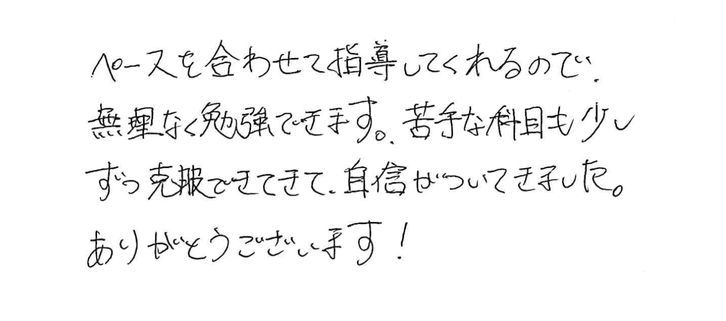 ペースを合わせて指導してくれるので、
無理なく勉強できます。苦手な科目も少し
ずつ克服できてきて、自信がついてきました。
ありがとうございます！